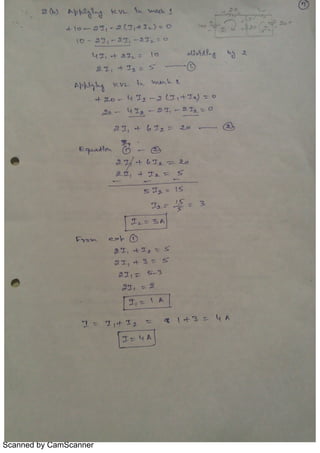 2(b) Applying KVL in mesh 1
+10 - 2I₁ - 2(I₁+I₂) = 0
10 - 2I₁ - 2I₁ - 2I₂ = 0
4I₁ + 2I₂ = 10 dividing by 2
2I₁ + I₂ = 5 — ①
Applying KVL in mesh 2
+20 - 4I₂ - 2(I₁+I₂) = 0
20 - 4I₂ - 2I₁ - 2I₂ = 0
2I₁ + 6I₂ = 20 — ②
Equation ① - ②
2I₁ + 6I₂ = 20
2I₁ + I₂ = 5
- - -
5I₂ = 15
I₂ = 15/5 = 3
I₂ = 3A
From eqn ①
2I₁ + I₂ = 5
2I₁ + 3 = 5
2I₁ = 5-3
2I₁ = 2
I₁ = 1 A
I = I₁ + I₂ = 1 + 3 = 4 A
I = 4A
Scanned by CamScanner